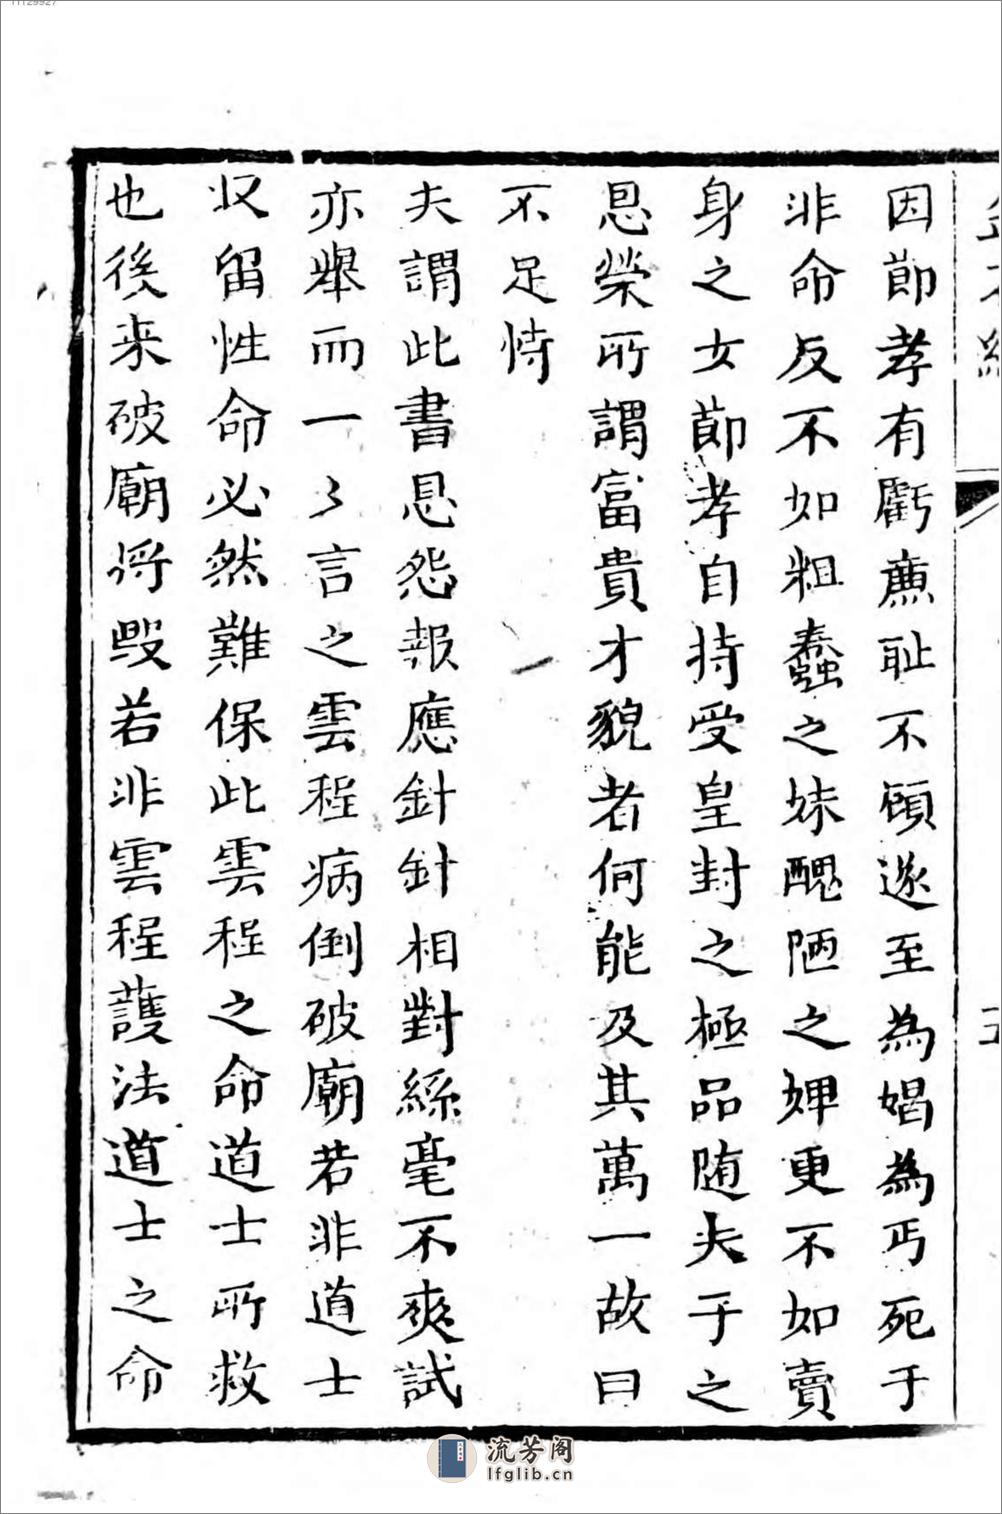 因節孝有虧廉耻不顧遂至為娼為丐死于
非命反不如粗蠢之妹醜陋之婢更不如賣
身之女節孝自持受皇封之極品随夫于之
恩榮所謂富貴才貌者何能及其萬一故曰
不足恃
夫謂此書恩怨報應針針相對絲毫不爽試
亦舉而一々言之雲程病倒破廟若非道士
収留性命必然難保此雲程之命道士所救
也後来破廟將毀若非雲程護法道士之命
流芳阁
lfglib.cn
11129927